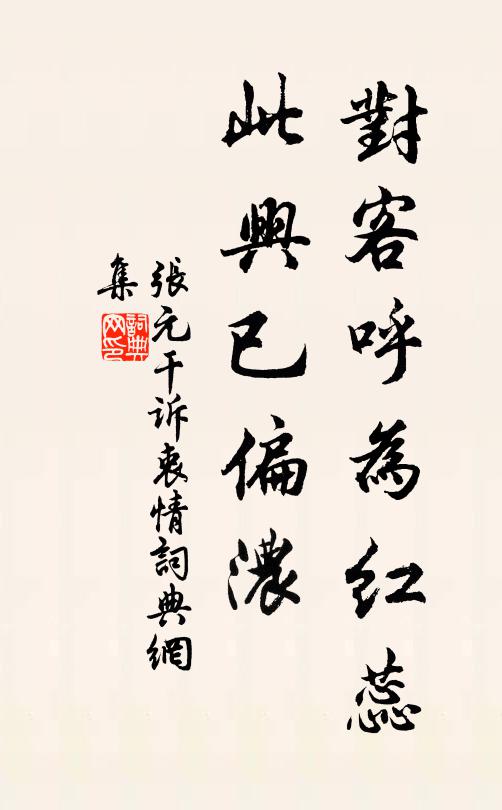 對客呼為紅蕊
此興已偏濃
張元干訴衷情詞典網
集
詞典
网印